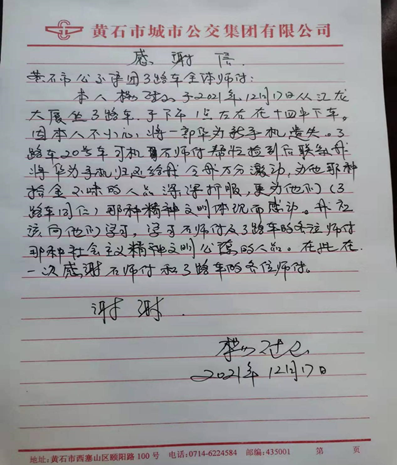 黄石市城市公交集团有限公司
感谢信
黄石市公交集团3路车全体师付:
本人杨 于2021年12月17日从江龙
大展坐3路车,于下午1点左右在十四中下车。
因本人不小心,将一部华为 手机遗失。3
路车20号车司机石师付帮忙捡到后联知我
将华为手机归还给我 令我万分激动,为他那种
拾金不昧的人品深深折服,更为他们(3
路车同仁)那种精神文明体现而感动。我应
该向他们学习,学习石师付及3路车的各位师付
那种社会主义精神文明公德的人品。在此在
一次感谢石师付和3路车的各位师付。
谢谢.
杨
2021年12月17日
地址:黄石市西塞山区颐阳路100号 电话:0714-6224584 邮编:435001 第 页